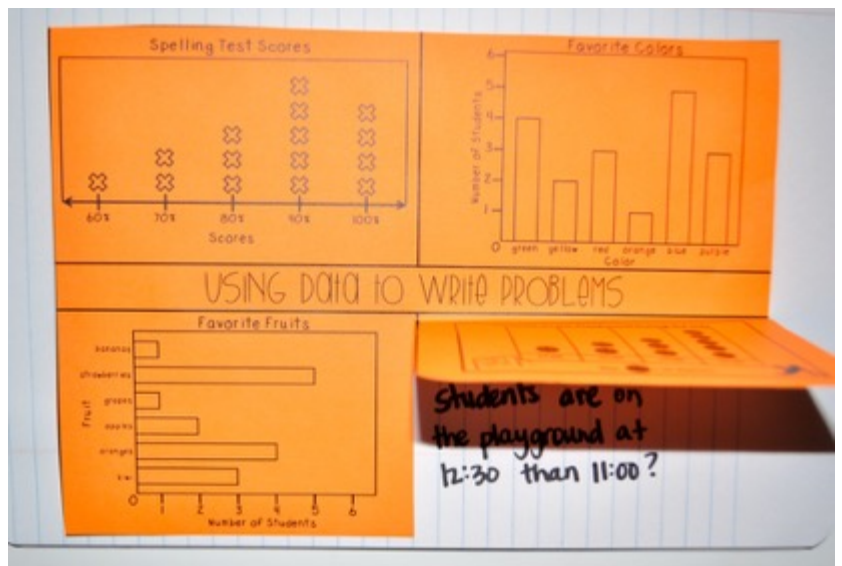 Spelling Test Scores
60% 70% 80% 90% 100%
Scores
Favorite Colors
6
5
4
3
2
1
0
Number of Students
green yellow red orange blue purple
Color
USING DATA TO WRITE PROBLEMS
Favorite Fruits
Fruit
bananas
strawberries
grapes
apples
oranges
kiwi
0 1 2 3 4 5 6
Number of Students
students are on
the playground at
12:30 than 11:00?